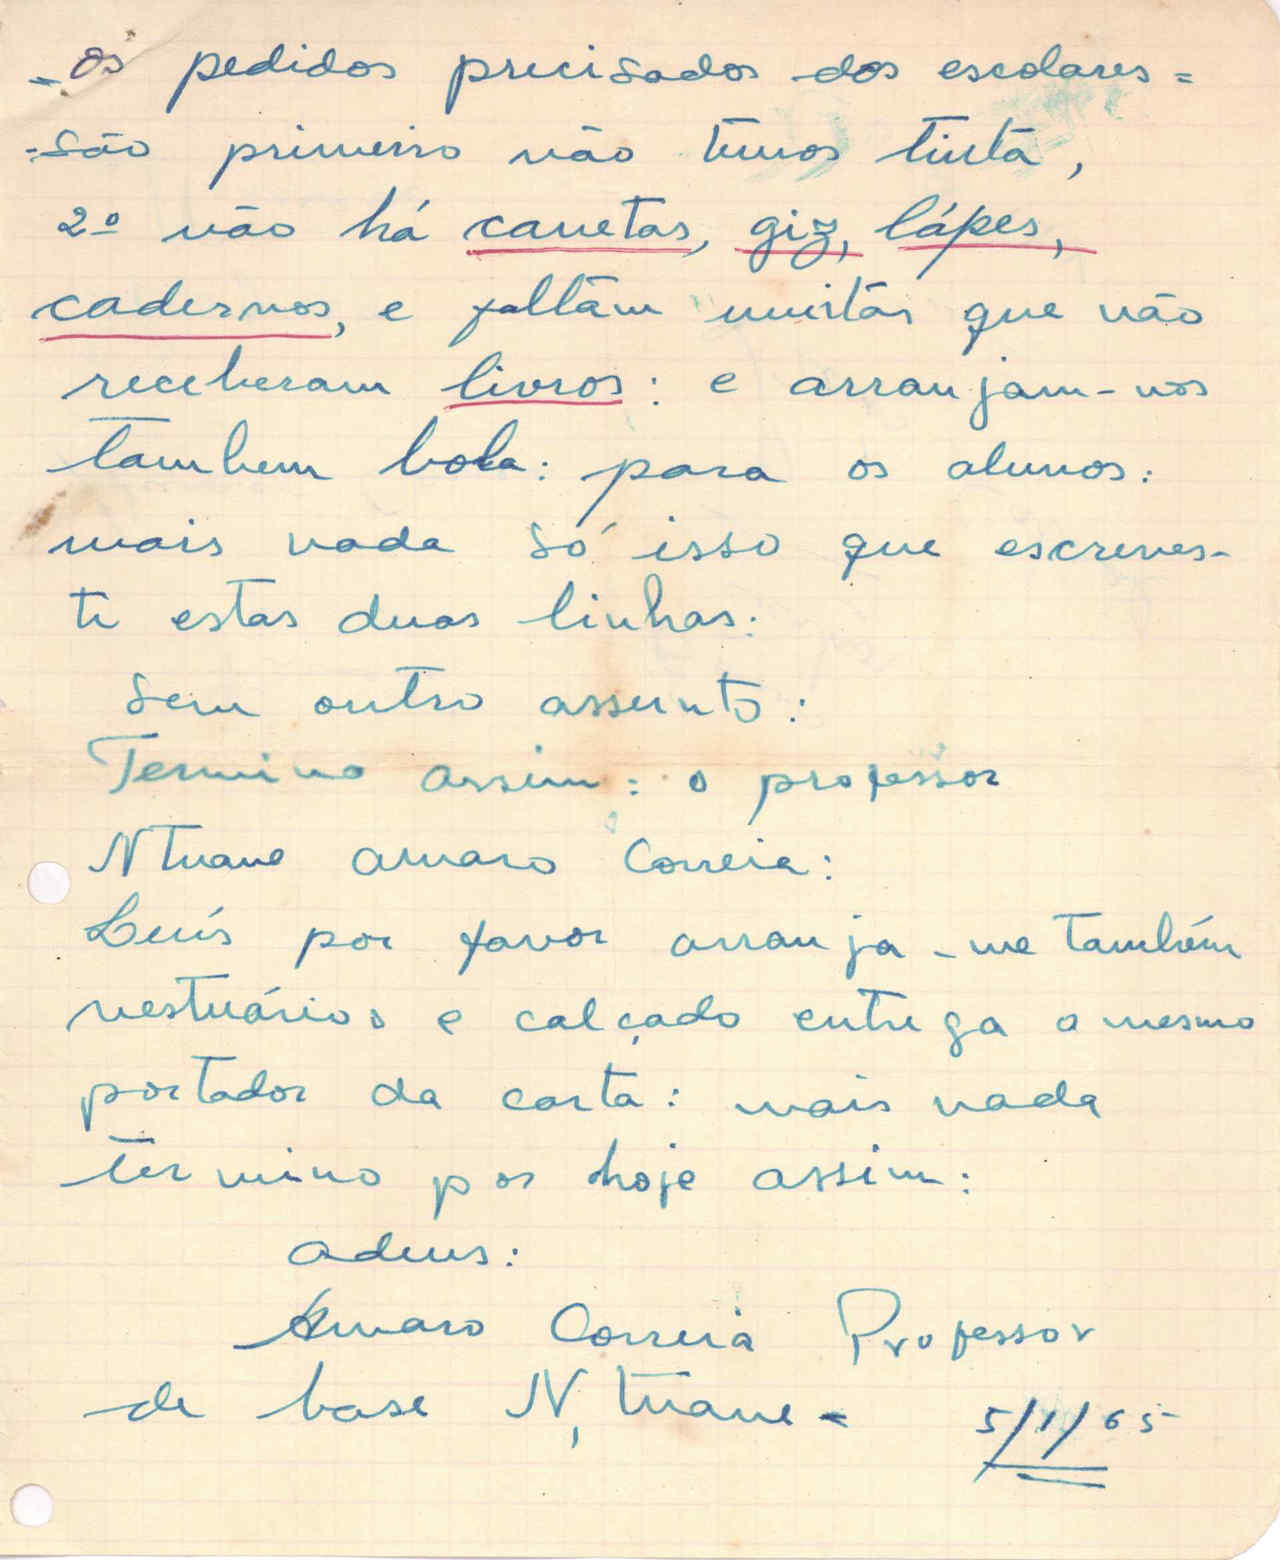 - Os pedidos precisados dos escolares =
- são primeiro não temos tinta,
2º não há canetas, giz, lápes,
cadernos, e faltam muitas que não
receberam livros: e arranjam-nos
tambem bola: para os alunos:
mais nada só isso que escreves-
te estas duas linhas:
Sem outro assunto:
Termino assim: o professor
N'Tuane Amaro Correia:
Luís por favor arranja-me também
vestuários e calçado entrega o mesmo
portador da carta: mais nada
termino por hoje assim:
adeus:
Amaro Correia Professor
de base N, tuane = 5/1/65